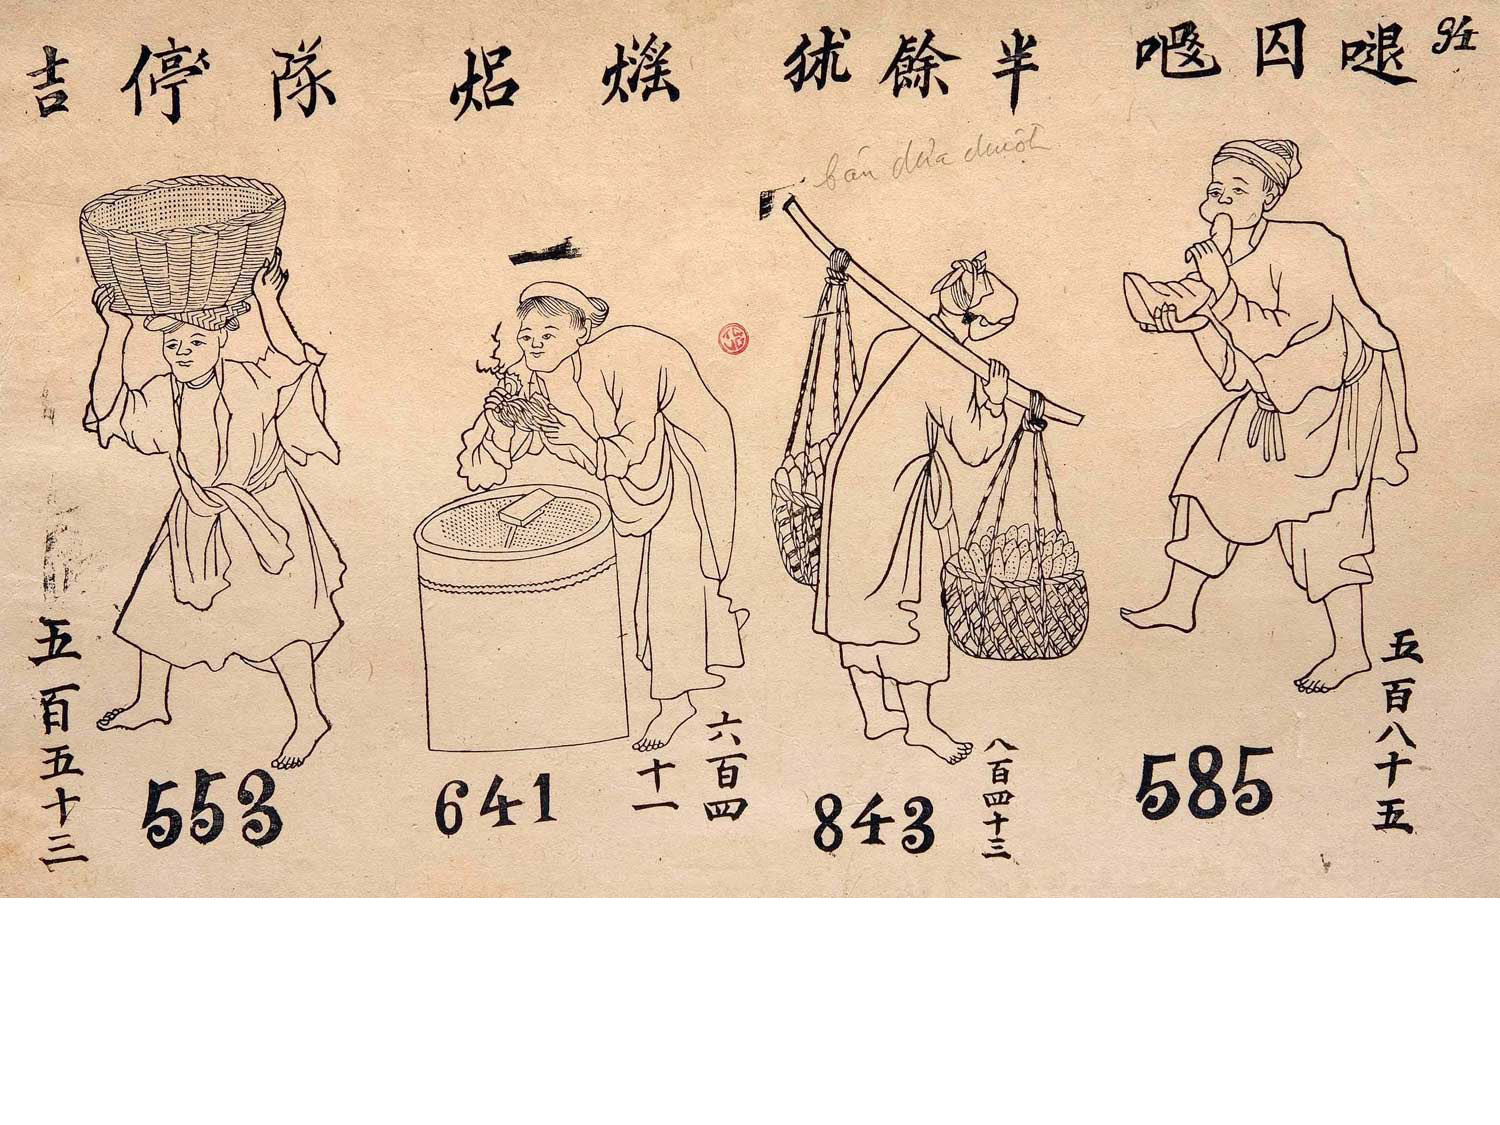 𠺙囚
半餘
焒
隊停吉
bán dưa chuột
五百八十五
585
八百四十三
843
六百四
十一
641
五百五十三
553